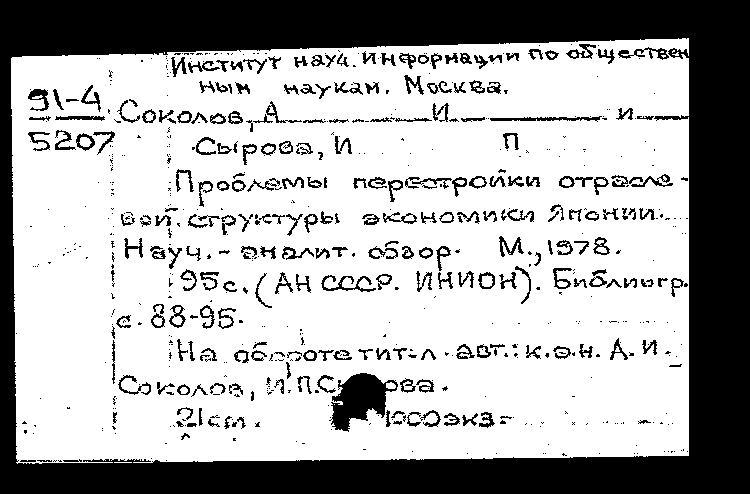 Институт науч. информации по обществен
ным наукам. Москва.
91-4
5207
Соколов, А И и
Сырова, И П
Проблемы перестройки отрасле-
вой структуры экономики Японии.
Науч.-аналит. обзор. М., 1978.
95с. (АН СССР. ИНИОН). Библиогр.
с. 88-95.
На обороте тит. л. авт.: к.э.н. А. И.
Соколов, И.П.
21см. 1000экз.